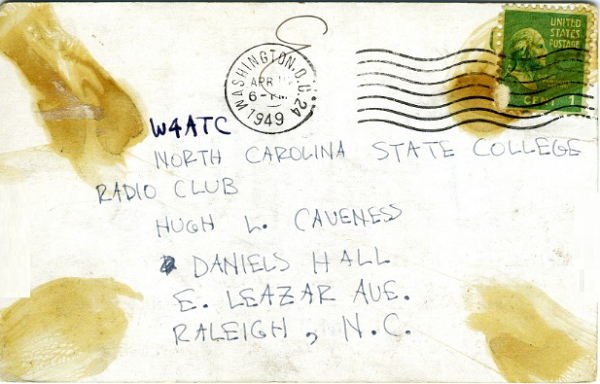 UNITED
STATES
POSTAGE
CENT 1
WASHINGTON, D.C. 24
APR
6-PM
1949
W4ATC
NORTH CAROLINA STATE COLLEGE
RADIO CLUB
HUGH L. CAVENESS
DANIELS HALL
E. LEAZAR AVE.
RALEIGH, N.C.